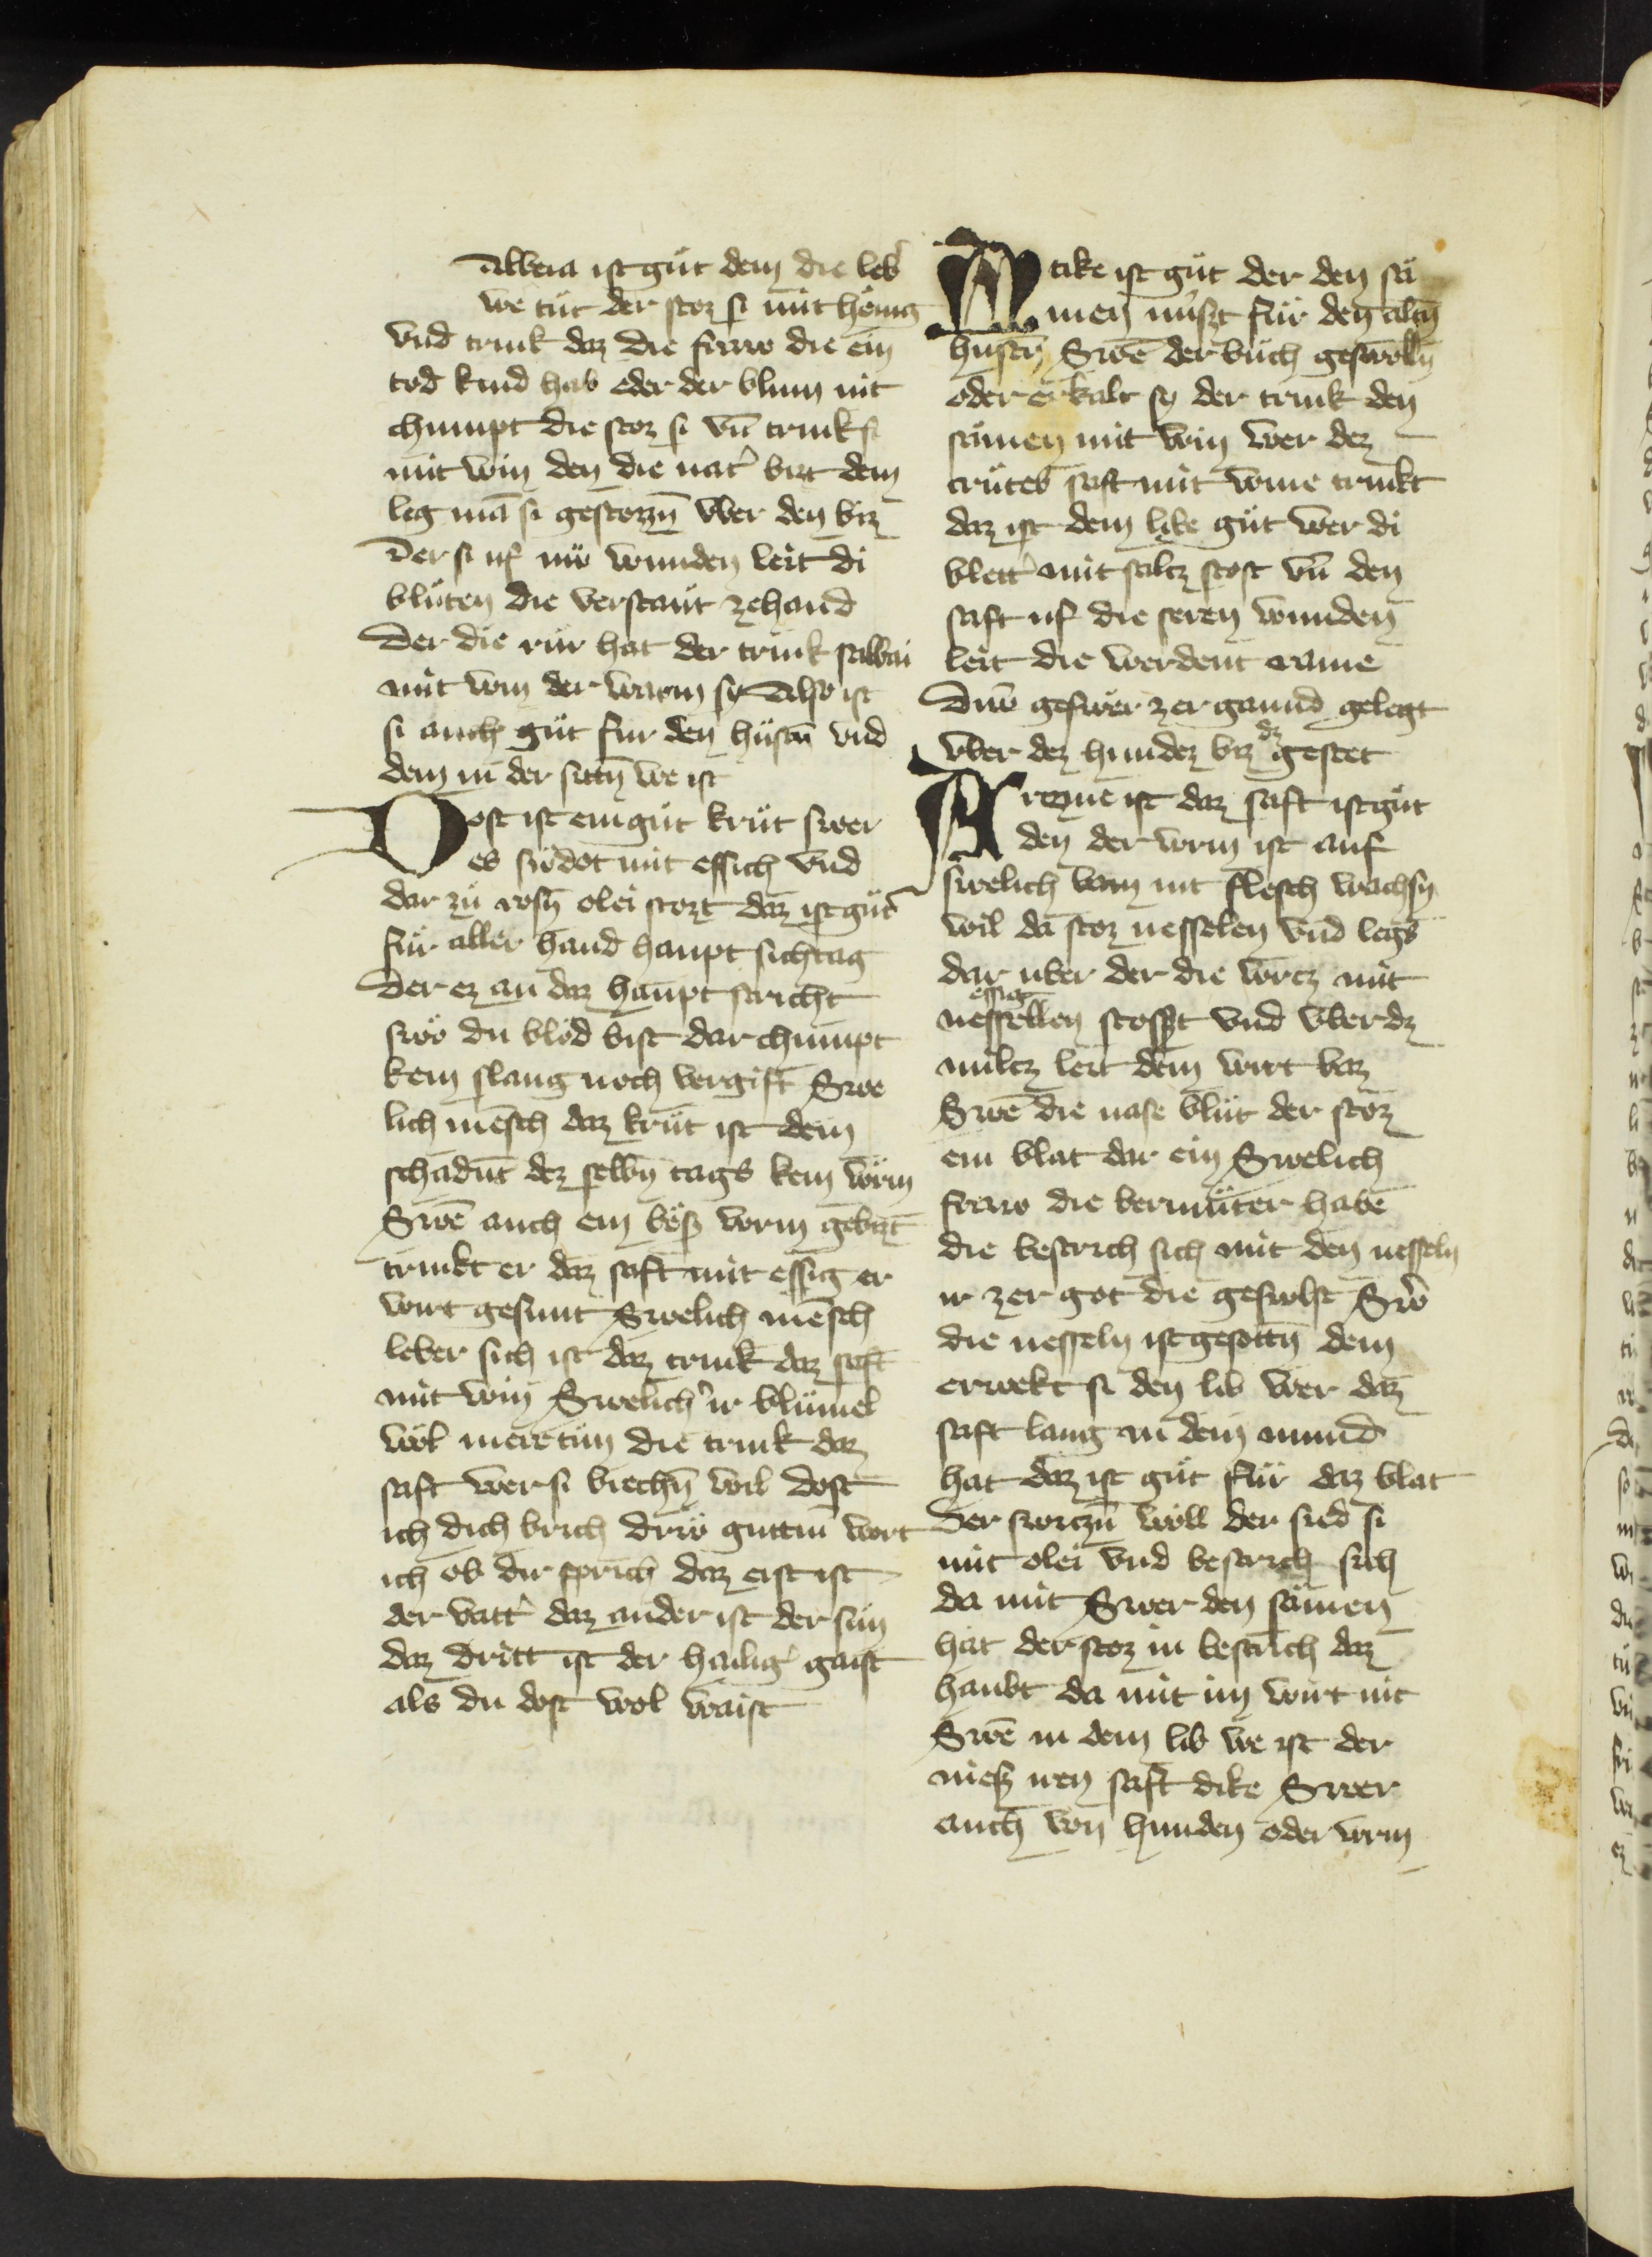 albeia ist gůt dem die leb'
we tůt der stoz si mit hönig
vnd trink daz die fraw die ein
tod kind hab oder der blum nit
chumpt die stoz si vn̄ trink si
mit win den die nat' bizt dem
leg mā si gestozzn̄ vber den biz
Der si uf nw̋ wunden leit di
blůten die verstant zehand
Der die rür hat der trink salbai
mit win der warm sy Also ist
si auch gůt fur den hůstn̄ vnd
dem in der sittn̄ we ist
Dost ist ein gůt krůt swer
es sw̋det mit essich vnd
dar zů rosn̄ olei stozt daz ist gůt
für aller hand haupt sichtag
Der ez an daz haupt stricht
swö du blöd bist dar chumpt
kein slang noch vergift Swe
lich mēsch daz krůt ist dem
schadnt dez selbn̄ tags kein wrm
Swē auch ein bős wrm gebizt
trinkt er daz saft mit essig er
wirt gesunt Swelich mēsch
leber sich ist daz trink daz saft
mit win Swelich' ir blůmel
wöl mere tůn die trink daz
saft wer si briechn̄ wil dost
ich dich brich driw̋ guttiu wort
ich ob dir sprich daz erst ist
der vatt' daz ander ist der sun
daz dritt ist der hailig' gaist
als du dost wol waist
Atike ist gůt der den sä
men nu̇szt für den altn̄
hůstn̄ Swē der buch geswolln̄
oder erkalt sy der trink den
sämen mit win wer dez
crůtes saft mit wine trinkt
daz ist dem libe gůt wer di
blett' mit saltz stost vn̄ den
saft uf die seren wunden
leit die werdent raine
Duw geswer zergannd gelegt
vber dez hundez biz dz gestet
Aremē ist daz saft ist gůt
den der wrm ist auf
swelich bain nit flesch wachsn̄
wil da stoz nesselen vnd legs
dar uber der die wrtz mit
essig
nessellen stosszt vnd vber dz
miltz leit dem wirt baz
Swē die nase blůt der stoz
ein blat dar ein Swelich
fraw die bermůter habē
die bestrich sich mit den nesseln
ir zer got die geswlst Swö
die nesseln ist gesottn̄ dem
erwekt si den lib wer daz
saft lang in dem mund
hat daz ist gůt für daz blat
Der swrczn̄ wöll der sied si
mit olei vnd bestrich sich
da mit Swer den sämen
hat der stoz in bestrich daz
haubt da mit im wirt nit
Swē in dem lib we ist der
niess iren saft dike Swer
auch von hunden oder wrm